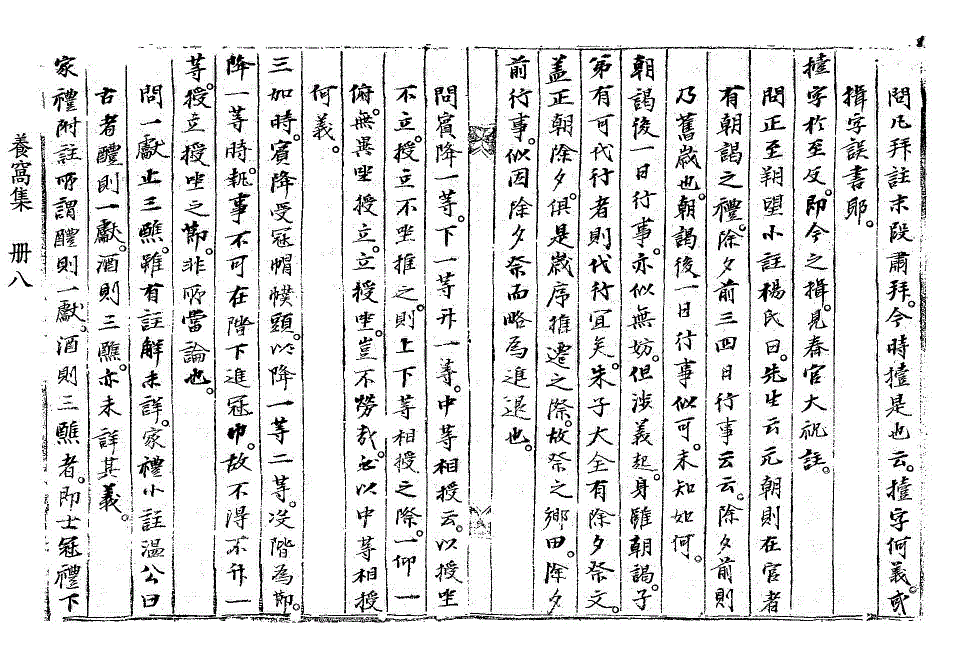 問凡拜註末段肅拜今時撎是也云撎字何義或
揖字誤書耶
撎字於至反即今之揖見春官大祝註
問正至朔朢小註楊氏曰先生云元朝則在官者
有朝謁之禮除夕前三四日行事云云除夕前則
乃舊歲也朝謁後一日行事似可未知如何
朝謁後一日行事亦似無妨但涉義起身雖朝謁子
弟有可代行者則代行宜矣朱子大全有除夕祭文
盖正朝除夕俱是歲序推遷之際故祭之鄉田除夕
前行事似因除夕祭而略為進退也
問賓降一等下一等升一等中等相授云以授坐
不立授立不坐推之則上下等相授之際一仰一
俯無異坐授立立授坐豈不勞哉必以中等相授
何義
三加時賓降受冠帽幞頭以降一等二等沒階為節
降一等時執事不可在階下進冠巾故不得不升一
等授立授坐之節非所當論也
問一獻止三醮雖有註解未詳家禮小註温公曰
古者醴則一獻酒則三醮亦未詳其義
家禮附註所謂醴則一獻酒則三醮者即士冠禮下
養窩集 册八